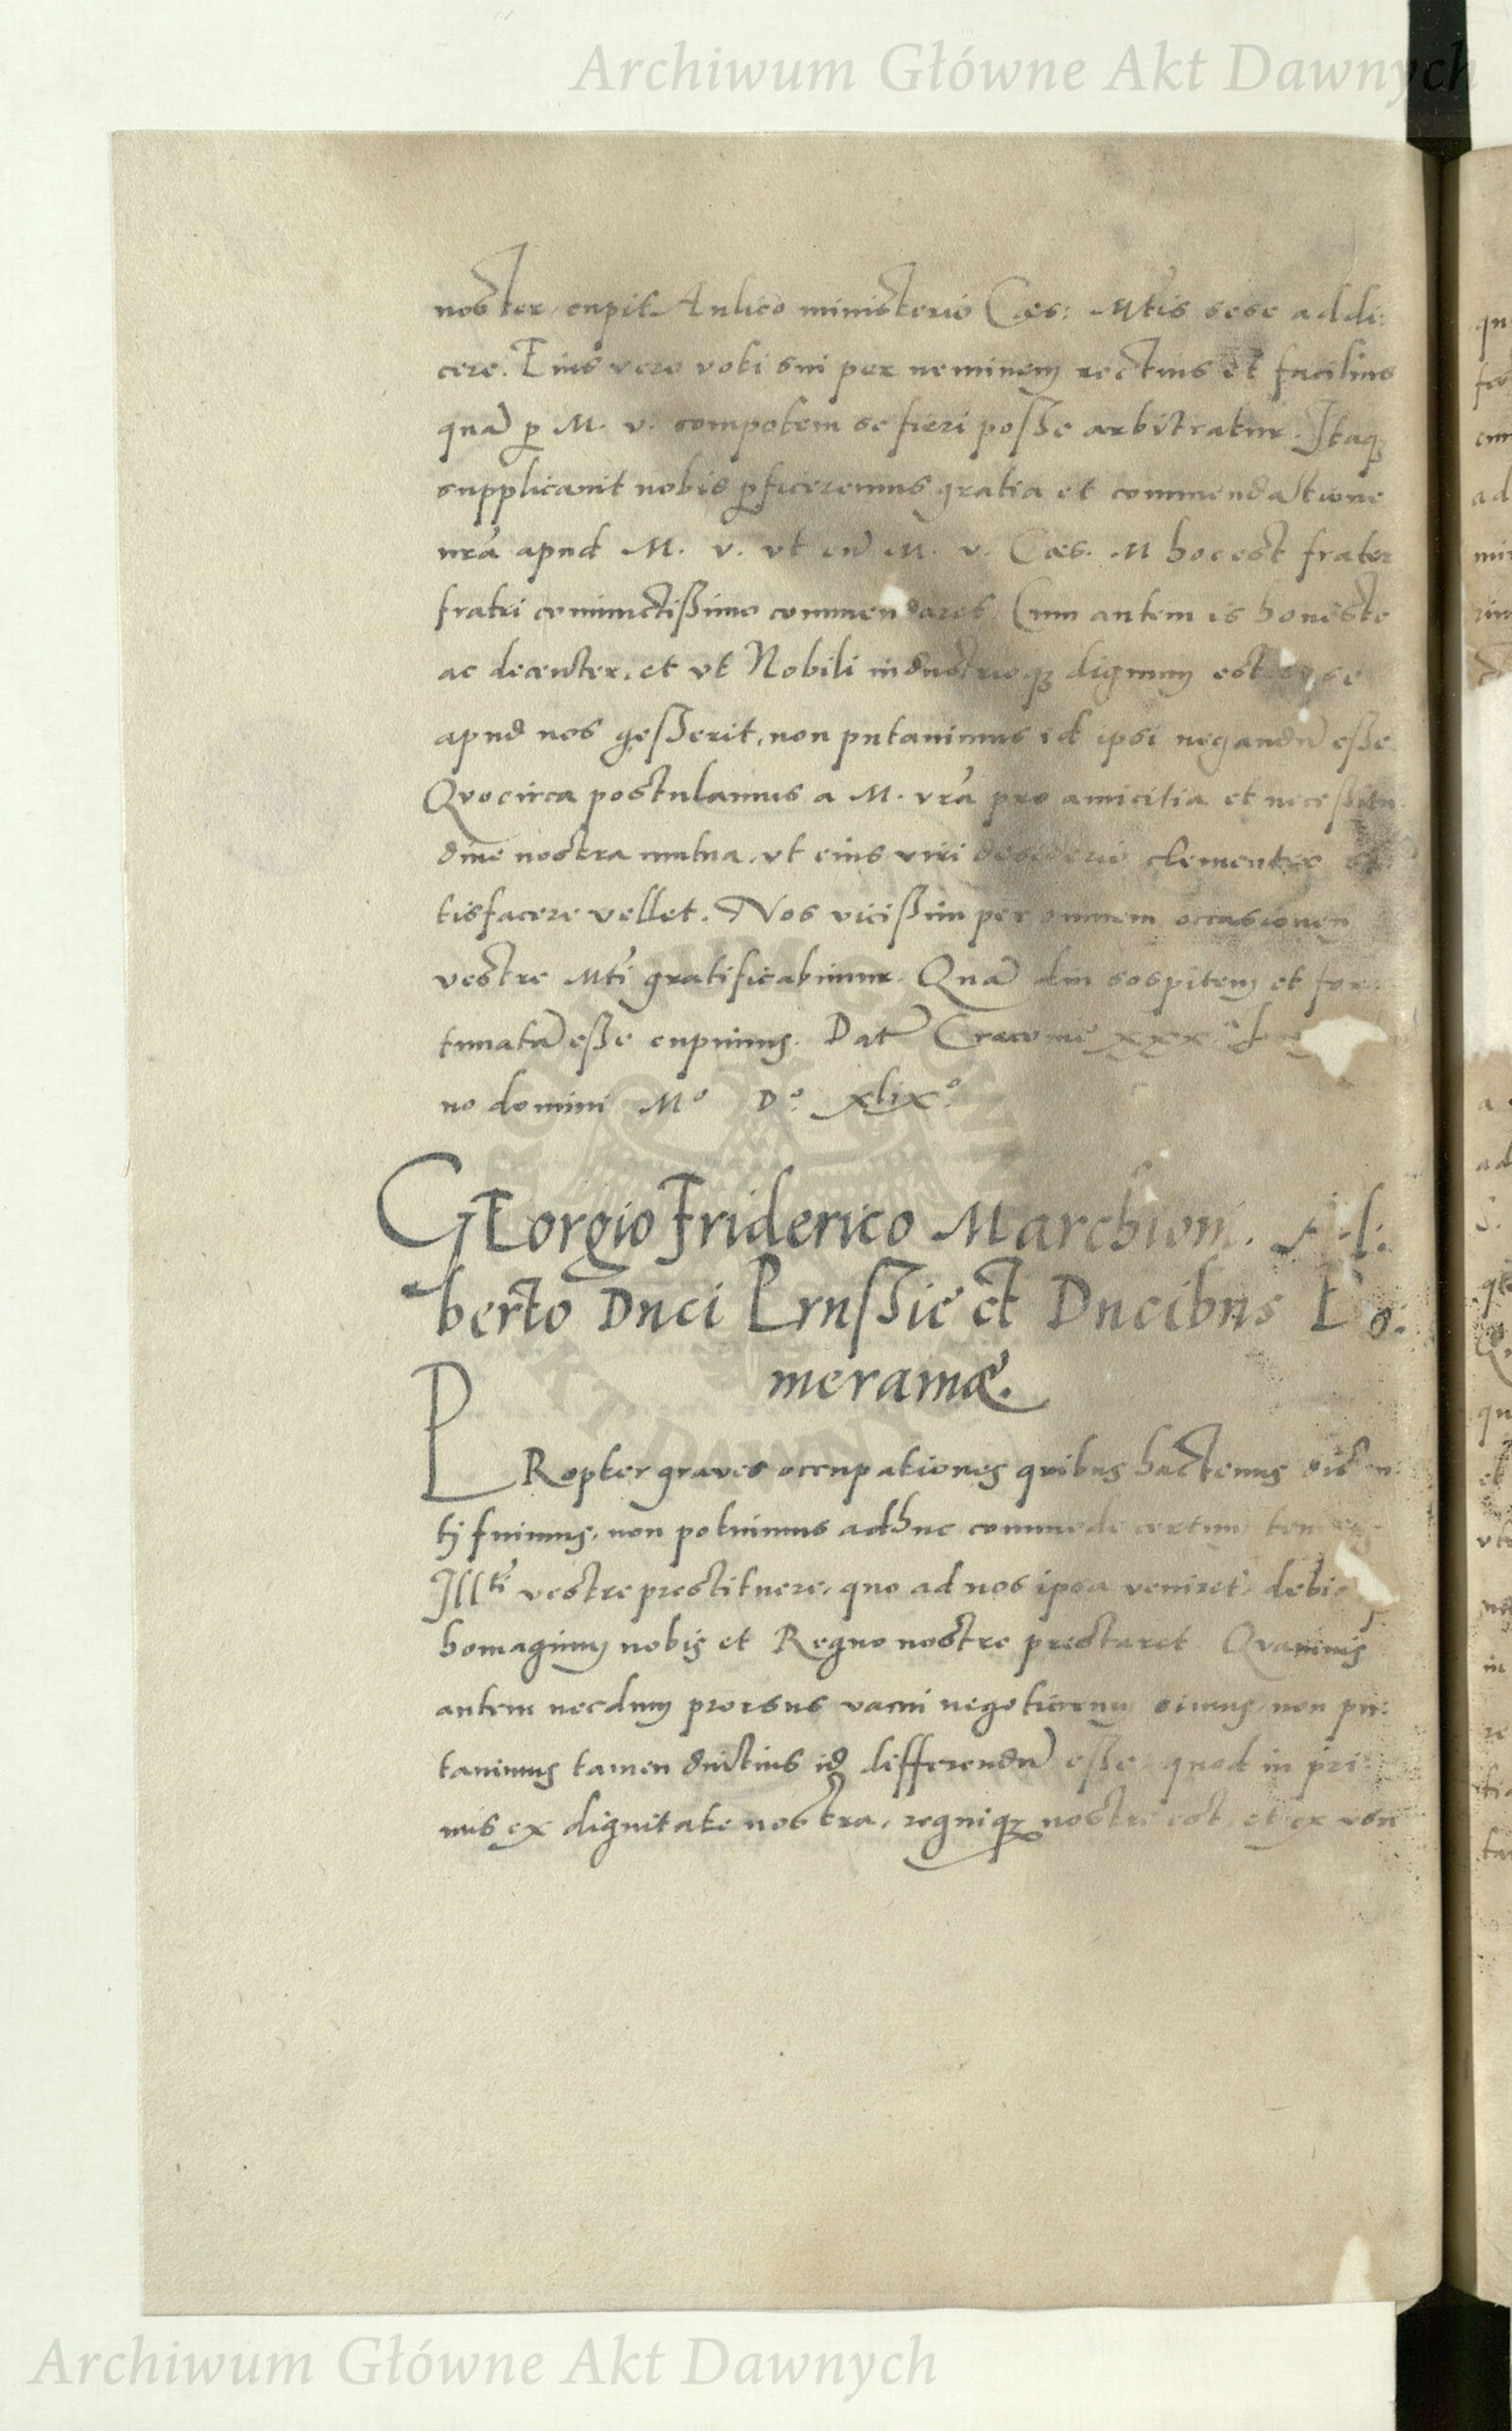 Archiwum Główne Akt Dawnych
noster, cupit Aulico ministerio Cæs: Mtis sese addi:
cere. Eius vero voti sui per neminem rectius et facilius
quā p M. v. compotem se fieri posse arbitratur. Itaq
supplicavit nobis pficeremus gratia et commendatione
nrā apud M. v. vt eū M. v. Cæs. M hoc est frater
fratri coniunctißimo commendaret. Cum autem is honeste
ac decenter, et vt Nobili industrioq dignum est se
apud nos gesserit, non putavimus id ipsi negandū esse.
Qvocirca postulamus a M. vrā pro amicitia et neceßitu
dine nostra mutua, vt eius viri desiderio clementer sa:
tisfacere vellet. Nos vicißim per omnem occasionem
vestre Mti gratificabimur. Quā diu sospitem et for:
tunatā eße cupimus. Dat Cracovie xxx
no domini Mº Dº xlixº
GEorgio Friderico Marchioni. Al:
berto Duci Prussie et Ducibus Po:
meraniæ.
PRopter graves occupationes quibus hactenus disten:
tj fuimus, non potuimus adhuc commode certum tempus
Illti vestre prestituere, quo ad nos ipsa veniret, debi
homagium nobis et Regno nostro prestaret Qvamvis
autem necdum prorsus vacui negotiorum simus, non pu:
tavimus tamen diutius id differendū esse, quod in pri:
mis ex dignitate nostra, regniq nostri est, et ex vsu
ARCHIWUM GŁÓWNE AKT DAWNYCH
Archiwum Główne Akt Dawnych